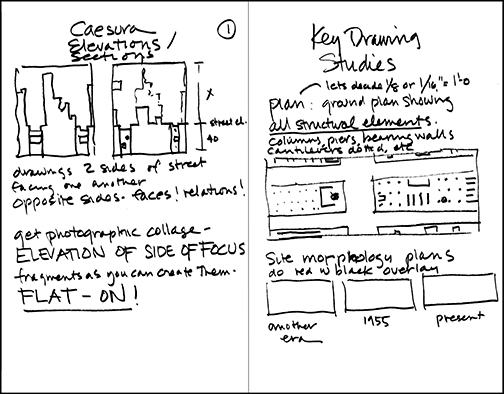 Caesura
Elevations/
Sections
1
X
street el.
40
drawings 2 sides of street
facing one another.
opposite sides. faces! relations!
get photographic collage -
ELEVATION OF SIDE OF FOCUS
fragments as you can create them.
FLAT - ON!
Key Drawing
Studies
lets decide 1/8 or 1/16" = 1'0
plan: ground plan showing
all structural elements.
columns, piers, bearing walls
cantilevers dotted, etc
Site morphology plans
do red w black overlay
another
era
1955
present